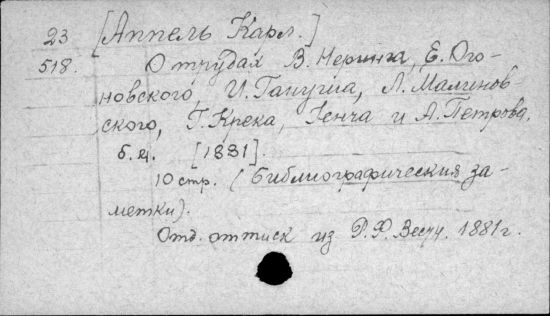 23 [Аппель Карл.]
518. О трудах В. Неринга, Е. Ого-
новского, И. Гануша, Л. Малинов-
ского, Г. Крека, Генча и А. Петрова.
б. ц. [1881].
10 стр. (Библиографическия за-
метки).
Отд. оттиск из Р. Ф. Вестн. 1881 г.